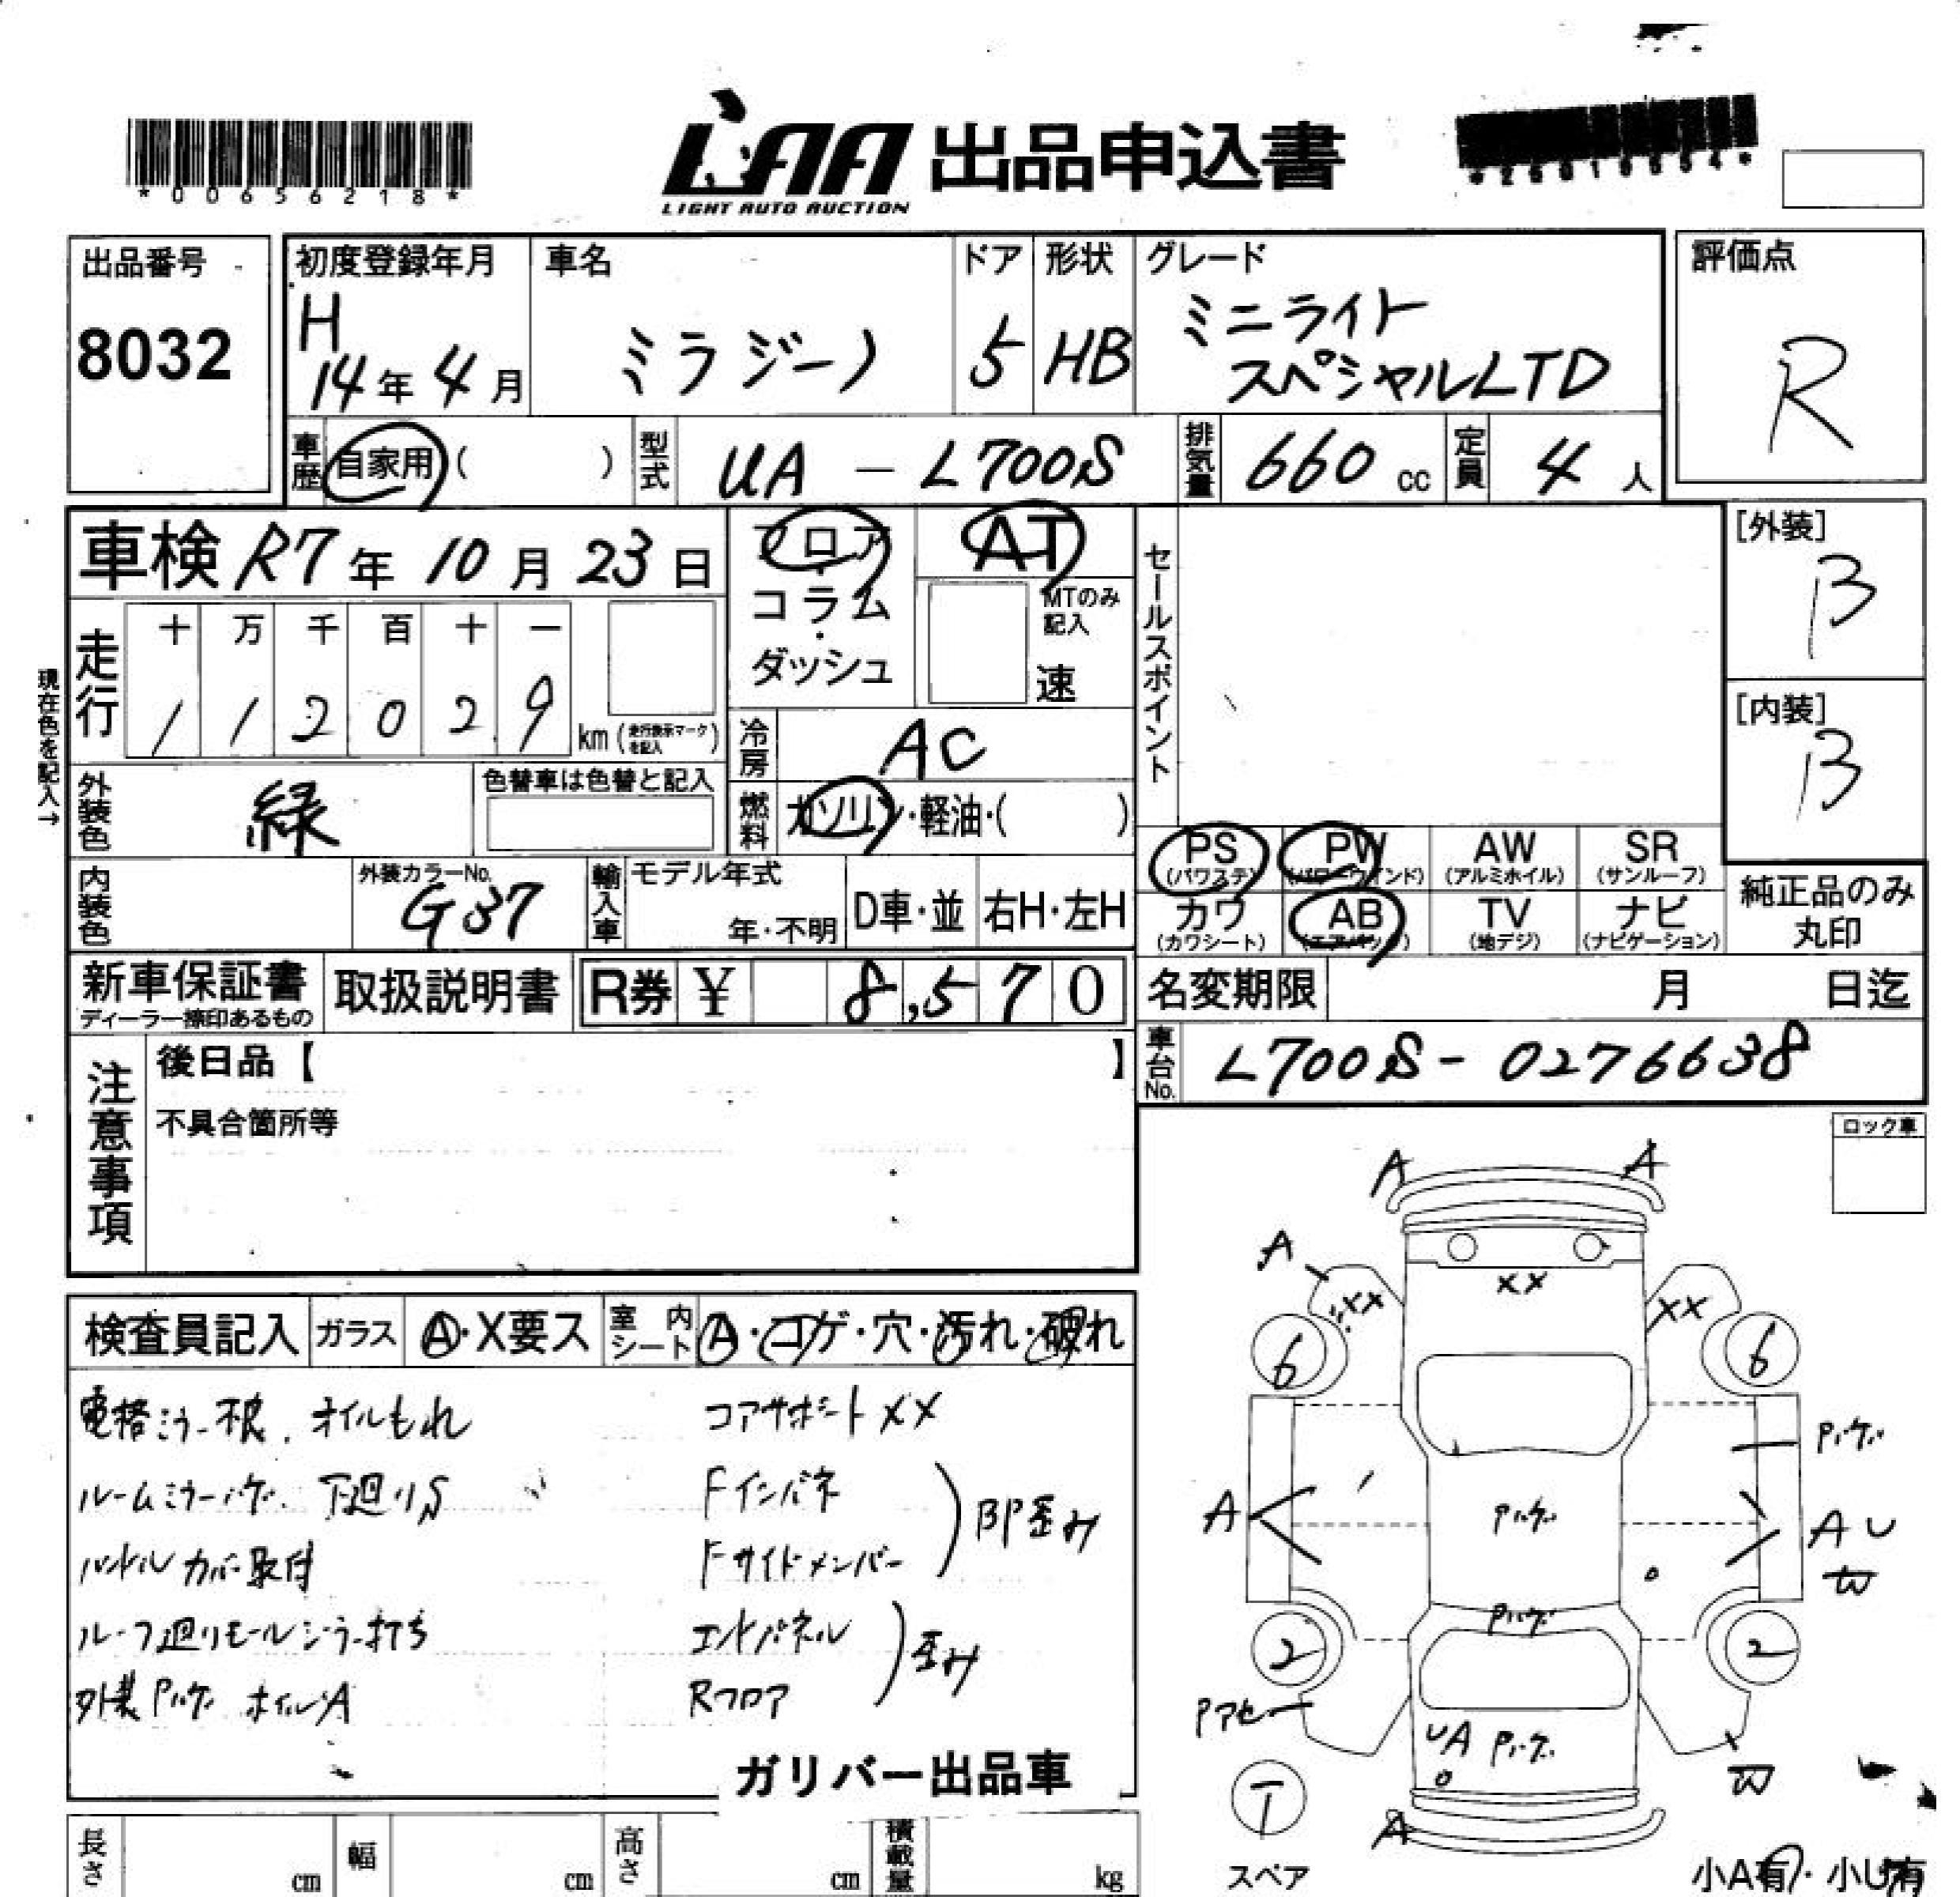 *00656218*
LAA 出品申込書
LIGHT AUTO AUCTION
出品番号
8032
初度登録年月
H
14年4月
車名
ミラジーノ
ドア
5
形状
HB
グレード
ミニライト
スペシャルLTD
評価点
R
車歴 自家用 ( )
型式 UA - L700S
排気量 660 cc
定員 4 人
車検 R7年10月23日
フロア
コラム
・
ダッシュ
AT
MTのみ
記入
速
セールスポイント
[外装]
B
[内装]
B
現在色を記入→
走行
十 万 千 百 十 一
1 1 2 0 2 9
km (走行表示マークを記入)
冷房 AC
外装色 緑
色替車は色替と記入
燃料 ガソリン・軽油・( )
内装色
外装カラーNo.
G37
輸入車
モデル年式
年・不明
D車・並
右H・左H
PS
(パワステ)
PW
(パワーウィンド)
AW
(アルミホイル)
SR
(サンルーフ)
カワ
(カワシート)
AB
(エアバッグ)
TV
(地デジ)
ナビ
(ナビゲーション)
純正品のみ
丸印
新車保証書
ディーラー捺印あるもの
取扱説明書
R券 ¥ 8,570
名変期限 月 日迄
車台No. L700S-0276638
注意事項
後日品【 】
不具合箇所等
ロック車
検査員記入
ガラス A・X要ス
室内シート A・コゲ・穴・汚れ・破れ
電格ミラー不良. オイルもれ
ルームミラーハゲ. 下廻りS
ハンドルカバー取付
ルーフ廻りモールシーラー打ち
外装Pハゲ ホイルA
コアサポートXX
Fインパネ
Fサイドメンバー
BP歪み
エンドパネル
Rフロア
歪み
ガリバー出品車
A
A
A
XX
XX
XX
6
6
Pハゲ
A
Pハゲ
A U
W
Pハゲ
2
2
Pアセ
UA Pハゲ
W
T
A
スペア
小A有・小U有
長さ cm
幅 cm
高さ cm
積載量 kg